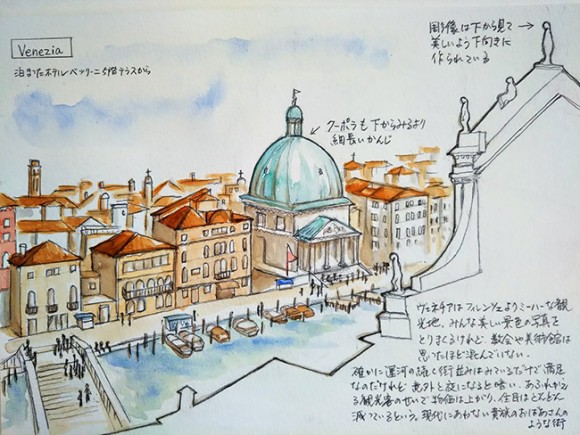 Venezia
泊まったホテルベッリーニ5階テラスから
周りの像は下から見て
美しいよう下向きに
作られている
クーポラも下からみるより
細長いかんじ
ヴェネチアはフィレンツェよりミーハーな観
光地。みんな美しい景色の写真を
とりまくるけれど、教会や美術館は
思ったほど混んでいない。
確かに運河の続く街並みはみているだけで満足
なのだけれど 意外と夜になると暗い。あふれかえ
る観光客のせいで物価は上がり、住民はどんどん
減っているという。現代にあわない貴族のおばあさんの
ような街